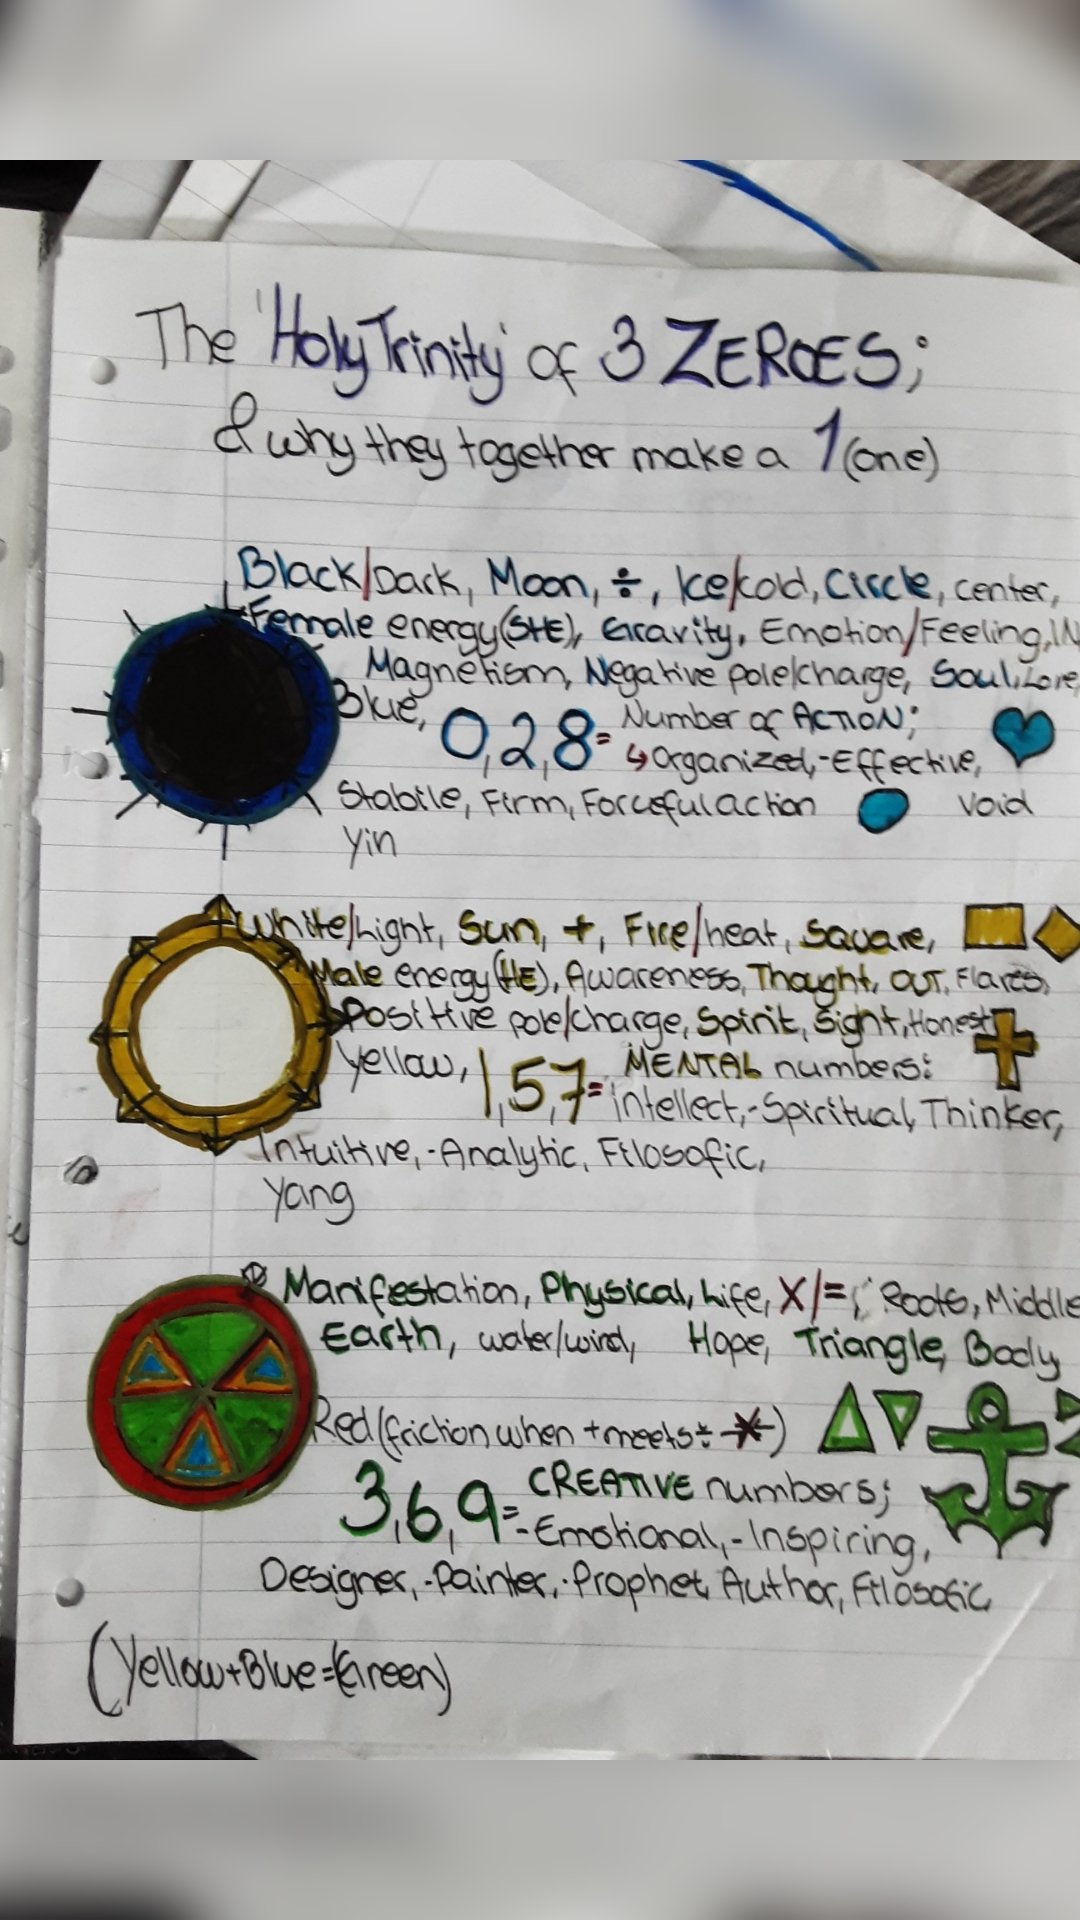 The 'Holy Trinity' of 3 ZEROES;
& why they together make a 1 (one)
Black/Dark, Moon, ÷, Ice/cold, Circle, center,
Female energy(SHE), Gravity, Emotion/Feeling, IN
Magnetism, Negative pole/charge, Soul, Love,
Blue, 0,2,8= Number of ACTION;
↳Organized,-Effective,
Stabile, Firm, Forceful action void
Yin
White/Light, Sun, +, Fire/heat, Square,
Male energy(HE), Awareness, Thought, OUT, Flares,
Positive pole/charge, Spirit, Sight, Honest
Yellow, 1,5,7= MENTAL numbers:
intellect,-Spiritual, Thinker,
Intuitive,-Analytic, Filosofic,
Yang
Manifestation, Physical, Life, X/=, Roots, Middle
Earth, water/wind, Hope, Triangle, Body
Red (friction when + meets ÷)
3,6,9= CREATIVE numbers;
-Emotional,-Inspiring,
Designer,-Painter,-Prophet, Author, Filosofic
(Yellow+Blue=(Green)